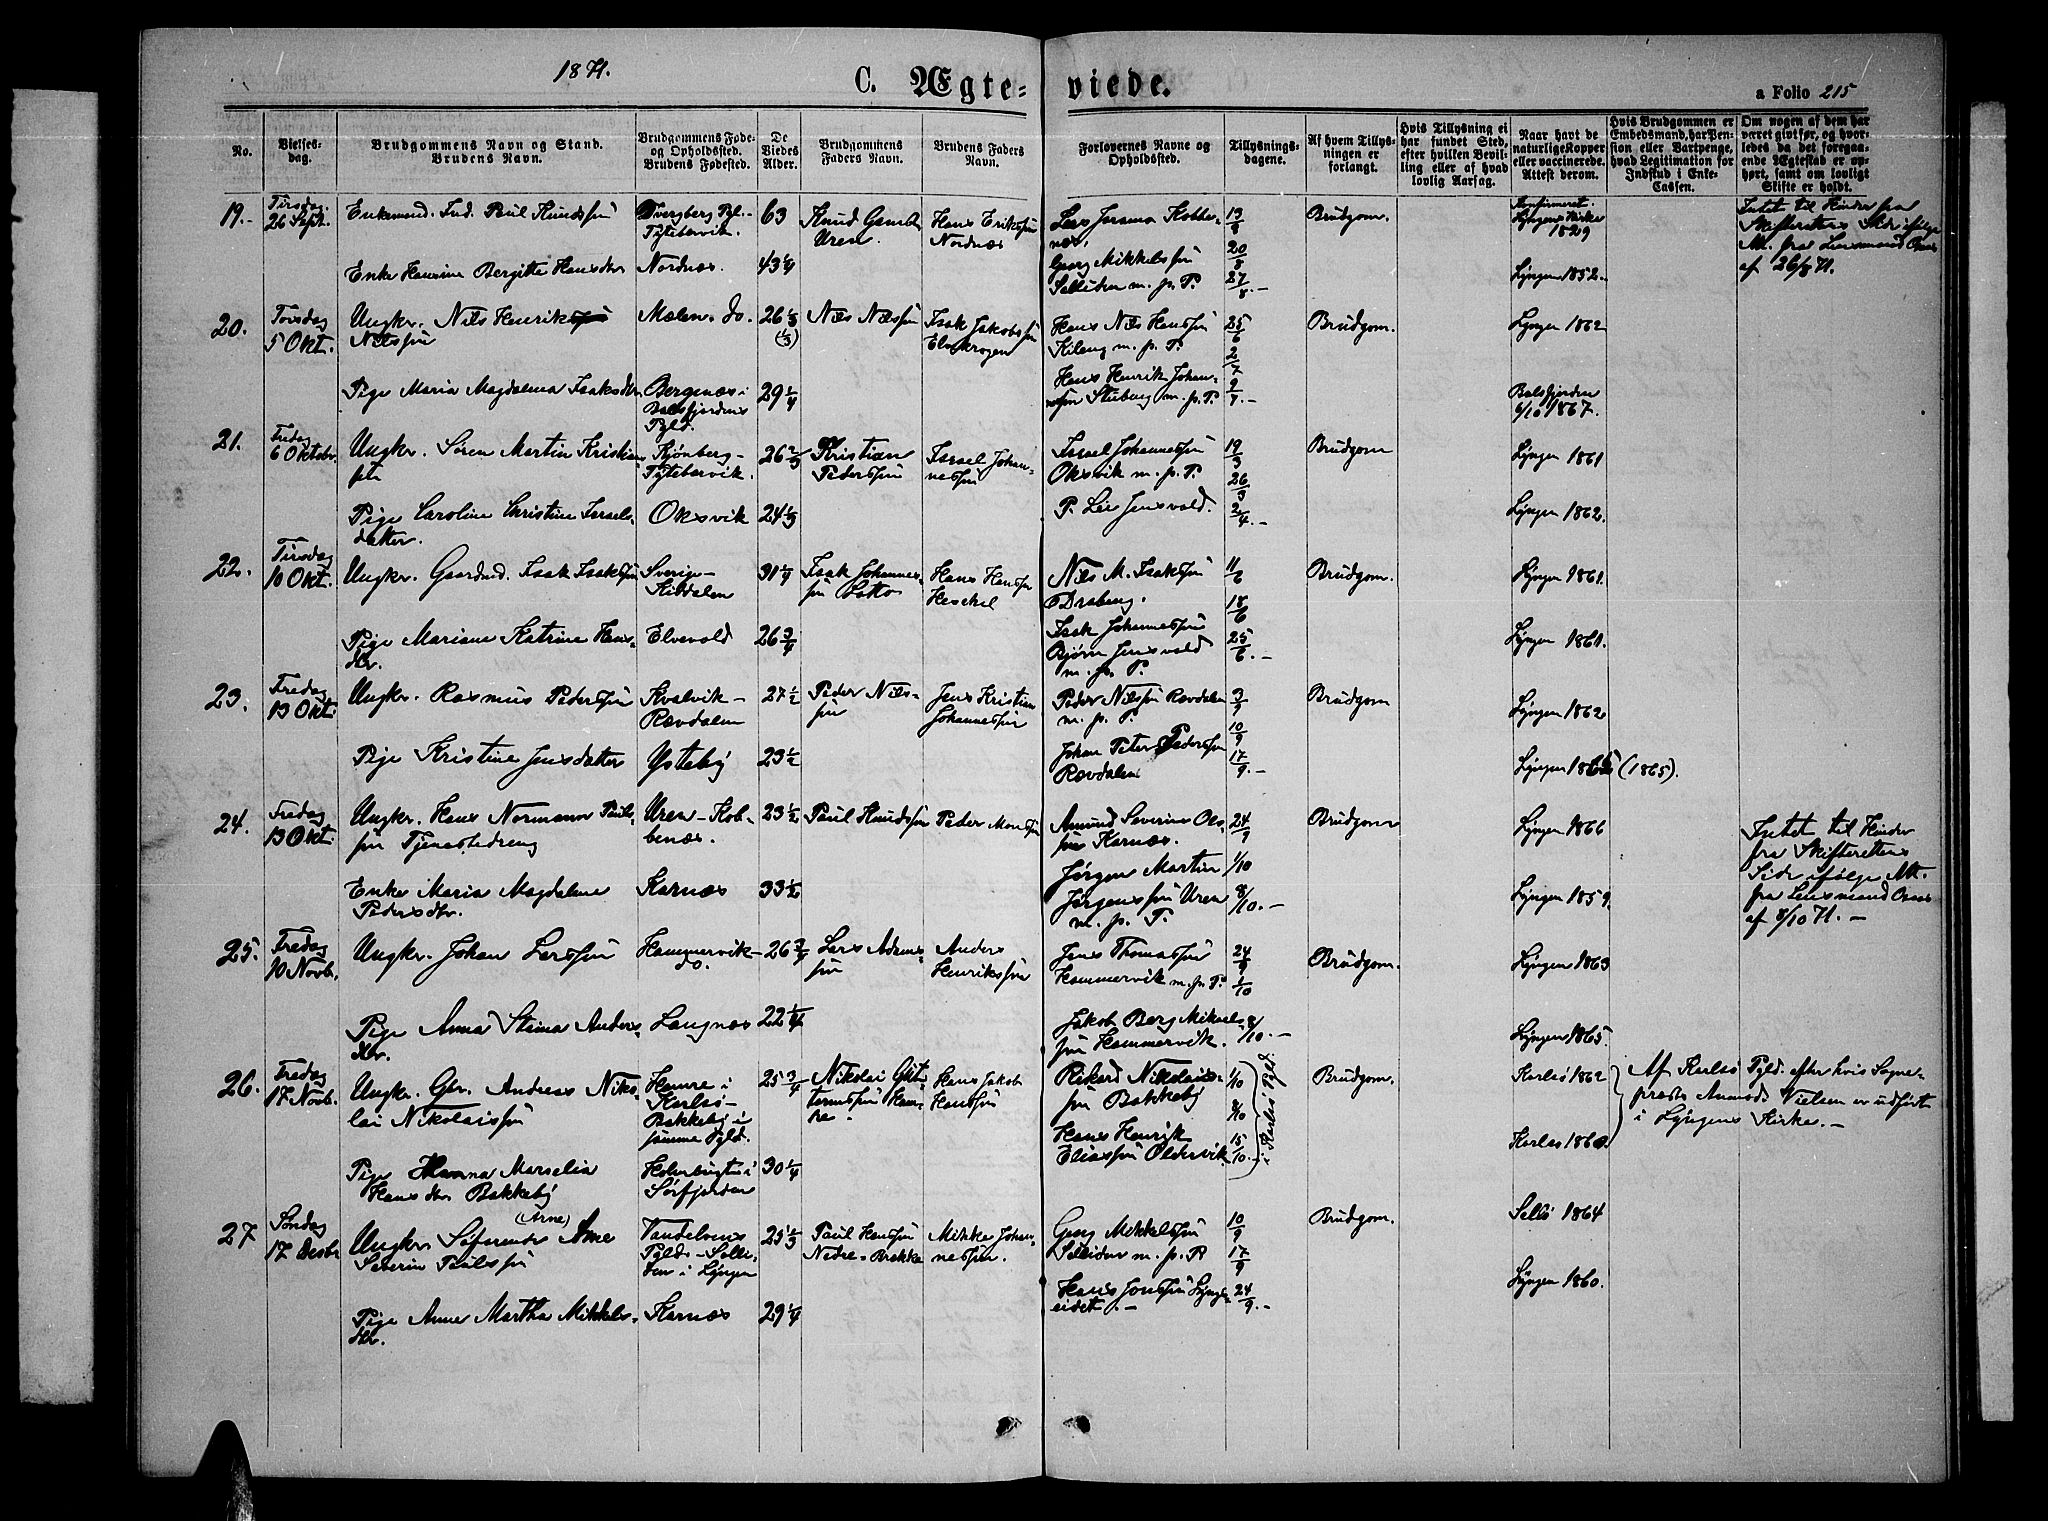 1871.
C. Ægte-
viede.
a Folio 215
No.
Vielses-
dag.
Brudgommens Navn og Stand.
Brudens Navn.
Brudgommens Føde-
og Opholdssted.
Brudens Fødested.
De
Viedes
Alder.
Brudgommens
Faders Navn.
Brudens Faders
Navn.
Forlovernes Navne og
Opholdssted.
Tillysnings-
dagene.
Af hvem Tillys-
ningen er
forlangt.
Hvis Tillysning ei
har fundet Sted,
efter hvilken Bevil-
ling eller af hvad
lovlig Aarsag.
Naar havt de
naturlige Kopper
eller vaccinerede.
Attest derom.
Hvis Brudgommen er
Embedsmand, har Pen-
sion eller Vartpenge,
hvad Legitimation for
Indskud i Enke-
Cassen.
Om nogen af dem har
været gift før, og hvor-
ledes da det foregaa-
ende Ægteskab er op-
hørt, samt om lovligt
Skifte er holdt.
19.-
Tirsdag
26 Sept.
Enkemand. Ind. Paul Knudssøn
Tytebærvik.
63
Knud
Uren.
Hans Erikssøn
Nordnæs
13/8
20/8
27/8.-
Brudgom.
Konfirmeret
Lyngens Kirke
1829
Intet til Hinder fra
Skifterettens Side ifølge
Att. fra Lensmand
af 26/8 71.
Enke Hansine Bergitte Hansdtr
Nordnæs.
43 1/4
Georg Mikkelssøn
Solliden m. p. P.
Lyngen 1852.
20.
Torsdag
5 Okt.
Ungkr. Nils Henrik
Nilssøn
Mælen. do.
26 1/3
(1/3)
Nils Nilssøn
Isak Jakobssøn
Elvekrogen
Hans Nils Hanssøn
Kileng m. p. P.
25/6
2/7
9/7.-
Brudgom.
Lyngen 1862
Pige Maria Magdalena Isaksdtr
Bergenæs i
Balsfjordens
Pgld.
29 1/4
Hans Henrik Johan-
søn Stubeng m. p. P.
Balsfjorden
6/10 1867.
21.
Fredag
6 Oktbr.
Ungkr. Søren Martin Kristian-
søn
Kjønberg-
Tytebærvik.
26 2/3
Kristian
Pederssøn
Israel Johan-
nessøn
Israel Johannessøn
Oksvik m. p. P.
19/3
26/3
2/4.-
Brudgom
Lyngen 1861
Pige Caroline Christine Israels-
datter.
Oksvik
24 1/3
P. Leis Jensvold.
Lyngen 1862.
22.
Tirsdag
10 Okt.
Ungkr. Gaardmd. Isak Isakssøn
Sverige-
Kitdalen
31 1/4
Isak Johannes-
søn
Hans Hanssøn
Heschel
Nils M. Isakssøn
11/6
18/6
25/6.-
Brudgom.
Lyngen 1861.
Pige Mariane Katrine Hans-
dtr.
Elvevold
26 3/4
Isak Johannessøn
Bjørn Jensvold
m. p. P.
Lyngen 1861.
23.
Fredag
13 Okt.
Ungkr. Rasmus Pederssøn
Kvalvik-
Rævdalen
27 1/2
Peder Nils-
søn
Jens Kristian
Johannessøn
Peder Nilssøn Rævdalen
m. p. P.
3/9
10/9
17/9.-
Brudgom
Lyngen 1862
Pige Kristine Jensdatter
Ysteby
23 1/2
Johan Peter Pederssøn
Rævdalen
Lyngen 1865 (1865).
24.
Fredag
13 Okt.
Ungkr. Hans Normann Pauls-
søn Tjenestedreng
Uren-Kob-
benæs.
23 1/2
Paul Knudssøn
Peder Monssøn
Amund Severin Ols-
søn Karnæs.
24/9
1/10
8/10.-
Brudgom
Lyngen 1866
Intet til Hinder
fra Skifterettens
Side ifølge Att.
fra Lensmand
af 8/10 71.-
Enke Maria Magdalena
Pedersdtr.
Karnæs
33 1/2
Jørgen Martin
Jørgenssøn Uren
m. p. P.
Lyngen 1859.
25.
Fredag
10 Novb.
Ungkr. Johan Larssøn
Hammervik-
do.
26 3/4
Lars Adams-
søn
Anders
Henrikssøn
Jens Thomassøn
Hammervik m. p. P.
24/9
1/10
8/10.-
Brudgom.
Lyngen 1863
Pige Anna Stina Anders-
dtr.
Langnæs
22 1/4
Jakob Berg Mikaels-
søn Hammervik.
Lyngen 1865.
26.
Fredag
17 Novb.
Ungkr. Gbr. Andreas Niko-
lai Nikolaissøn
Hamre i
Karlsø-
Bakkeby i
samme Pgld.
25 3/4
Nikolai
Ham-
re-
Hans Jakob
Hanssøn
Rikard Nikolais-
søn Bakkeby
1/10
8/10
15/10.-
i Karlsø Pgld.
Brudgom.
Karlsø 1862
Af Karlsø Pgld. efter hvis Sogne-
præsts Anmodn. Vielsen er udført
i Lyngens Kirke.-
Pige Hanna Marselia
Hansdtr Bakkeby
Sørfjorden
30 1/4
Hans Henrik
Eliassøn Oldervik
Karlsø 1860.
27
Søndag
17 Decbr
(Arne)
Ungkr. Arne
Severin Paulssøn
Pgld.-Solli-
den i Lyngen
25 1/3
Paul Hanssøn
Nedre-Brække
Mikkel Johan-
nessøn.
Georg Mikkelssøn
Solliden m. p. P
10/9
17/9
24/9.-
Brudgom.
1864
Pige Anne Martha Mikkels-
dtr.
Karnæs
29 1/4
Hans Jonssøn Lyngs-
eidet.-
Lyngen 1860.